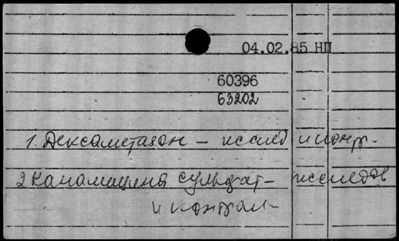 04.02.85 НП
60396
63202
1. Дексаметазон – исслед и контр.
2 Канамицина сульфат – исследов
и контрол